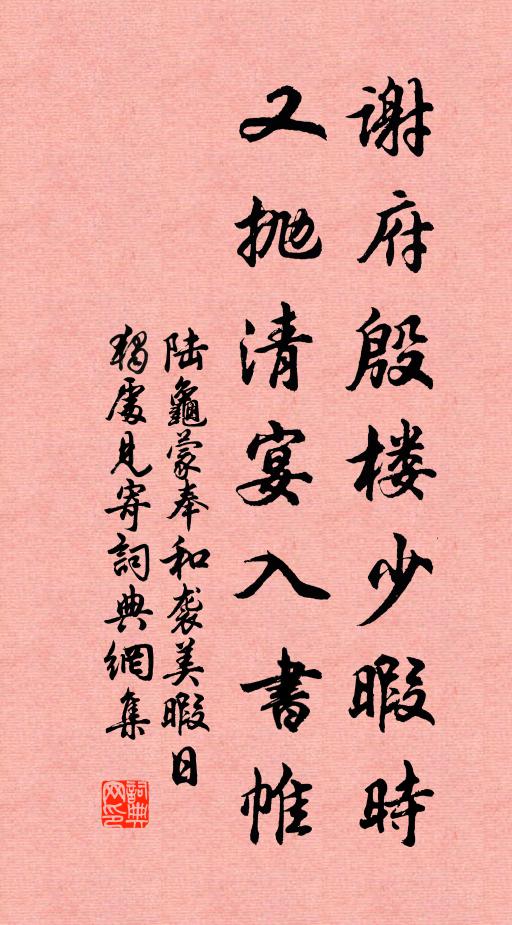 谢府殷楼少暇時
又抛清宴入書帷
陆龜蒙奉和袭美暇日
獨處見寄詞典網集
詞典网印